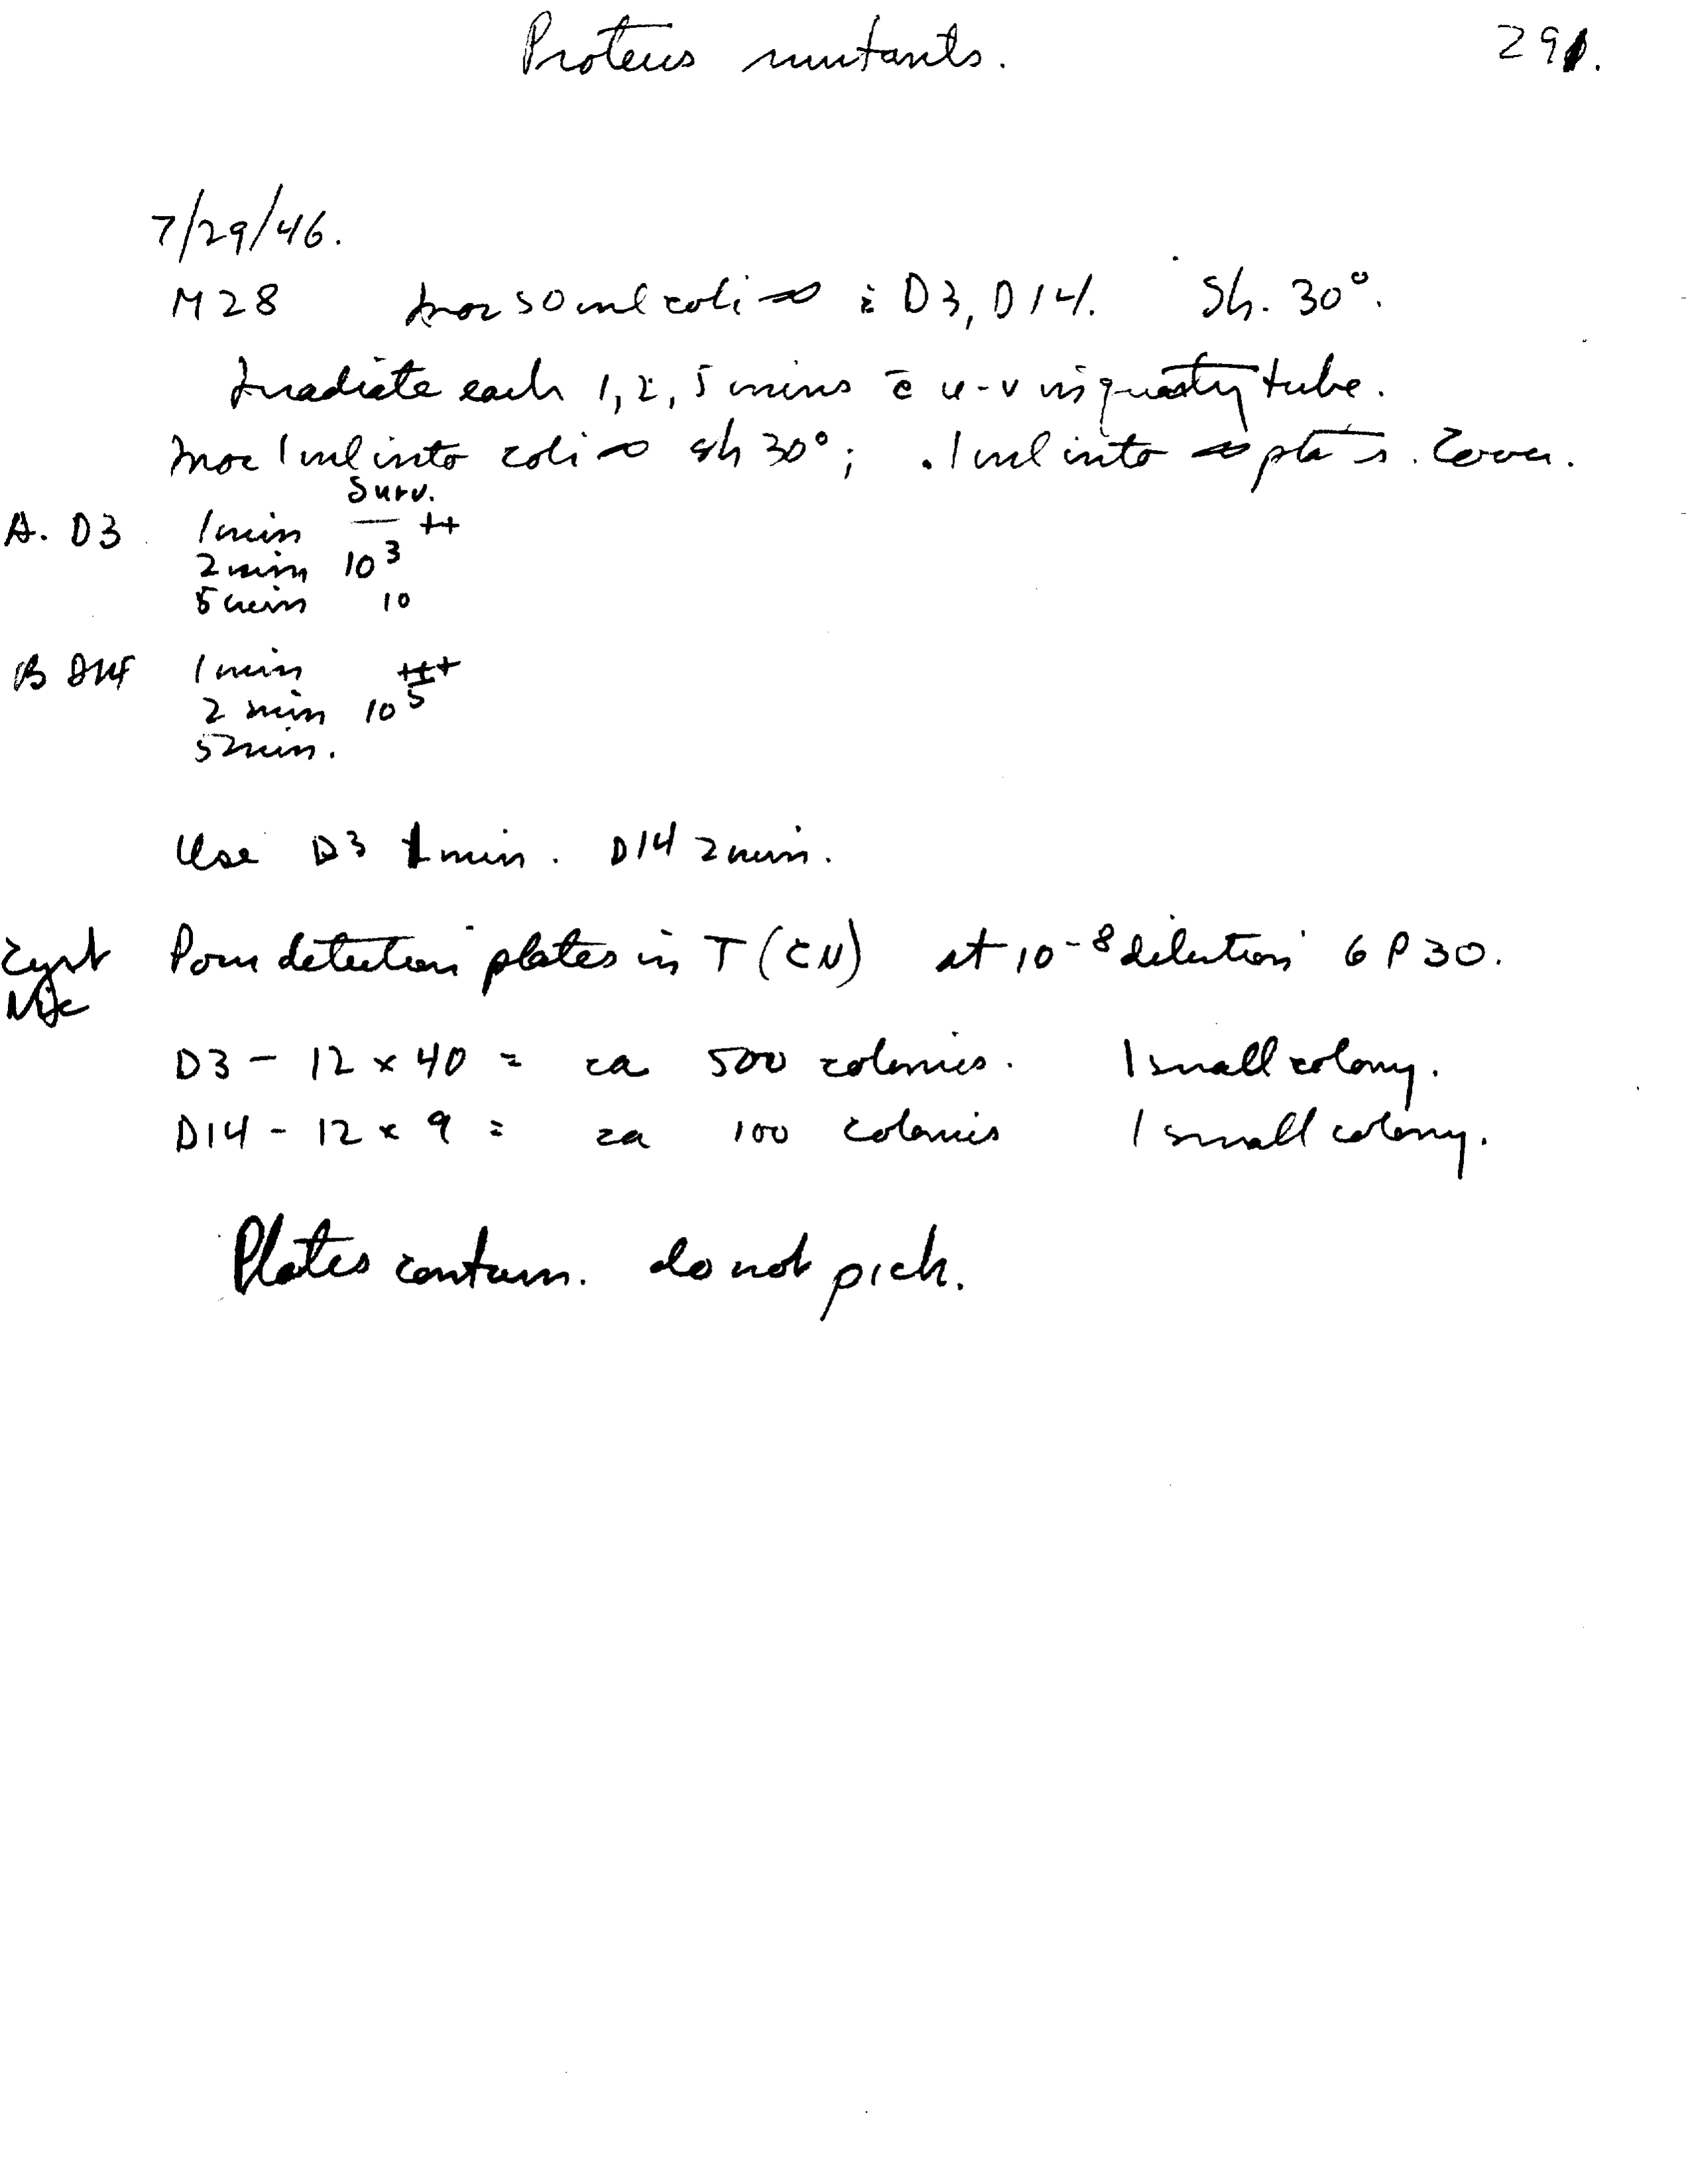 Proteus mutants. 291.
7/29/46.
M28 Inoc 50 ml coli ∞ c̄ D3, D14. Sh. 30°.
Irradiate each 1, 2, 5 mins c̄ u-v in quartz tube.
Inoc 1 ml into coli ∞ sh 30°; .1 ml into ∞ plates. Cover.
Surv.
A. D3 1 min — ++
2 min 10³
5 min 10
B D14 1 min +++
2 min 10⁵
5 min.
Use D3 1 min. D14 2 min.
Cyst Pour detection plates in T (CN) at 10⁻⁸ dilution 6 P 30.
Nic
D3 – 12 x 40 = ca 500 colonies. 1 small colony.
D14 – 12 x 9 = ca 100 colonies 1 small colony.
Plates contam. do not pick.